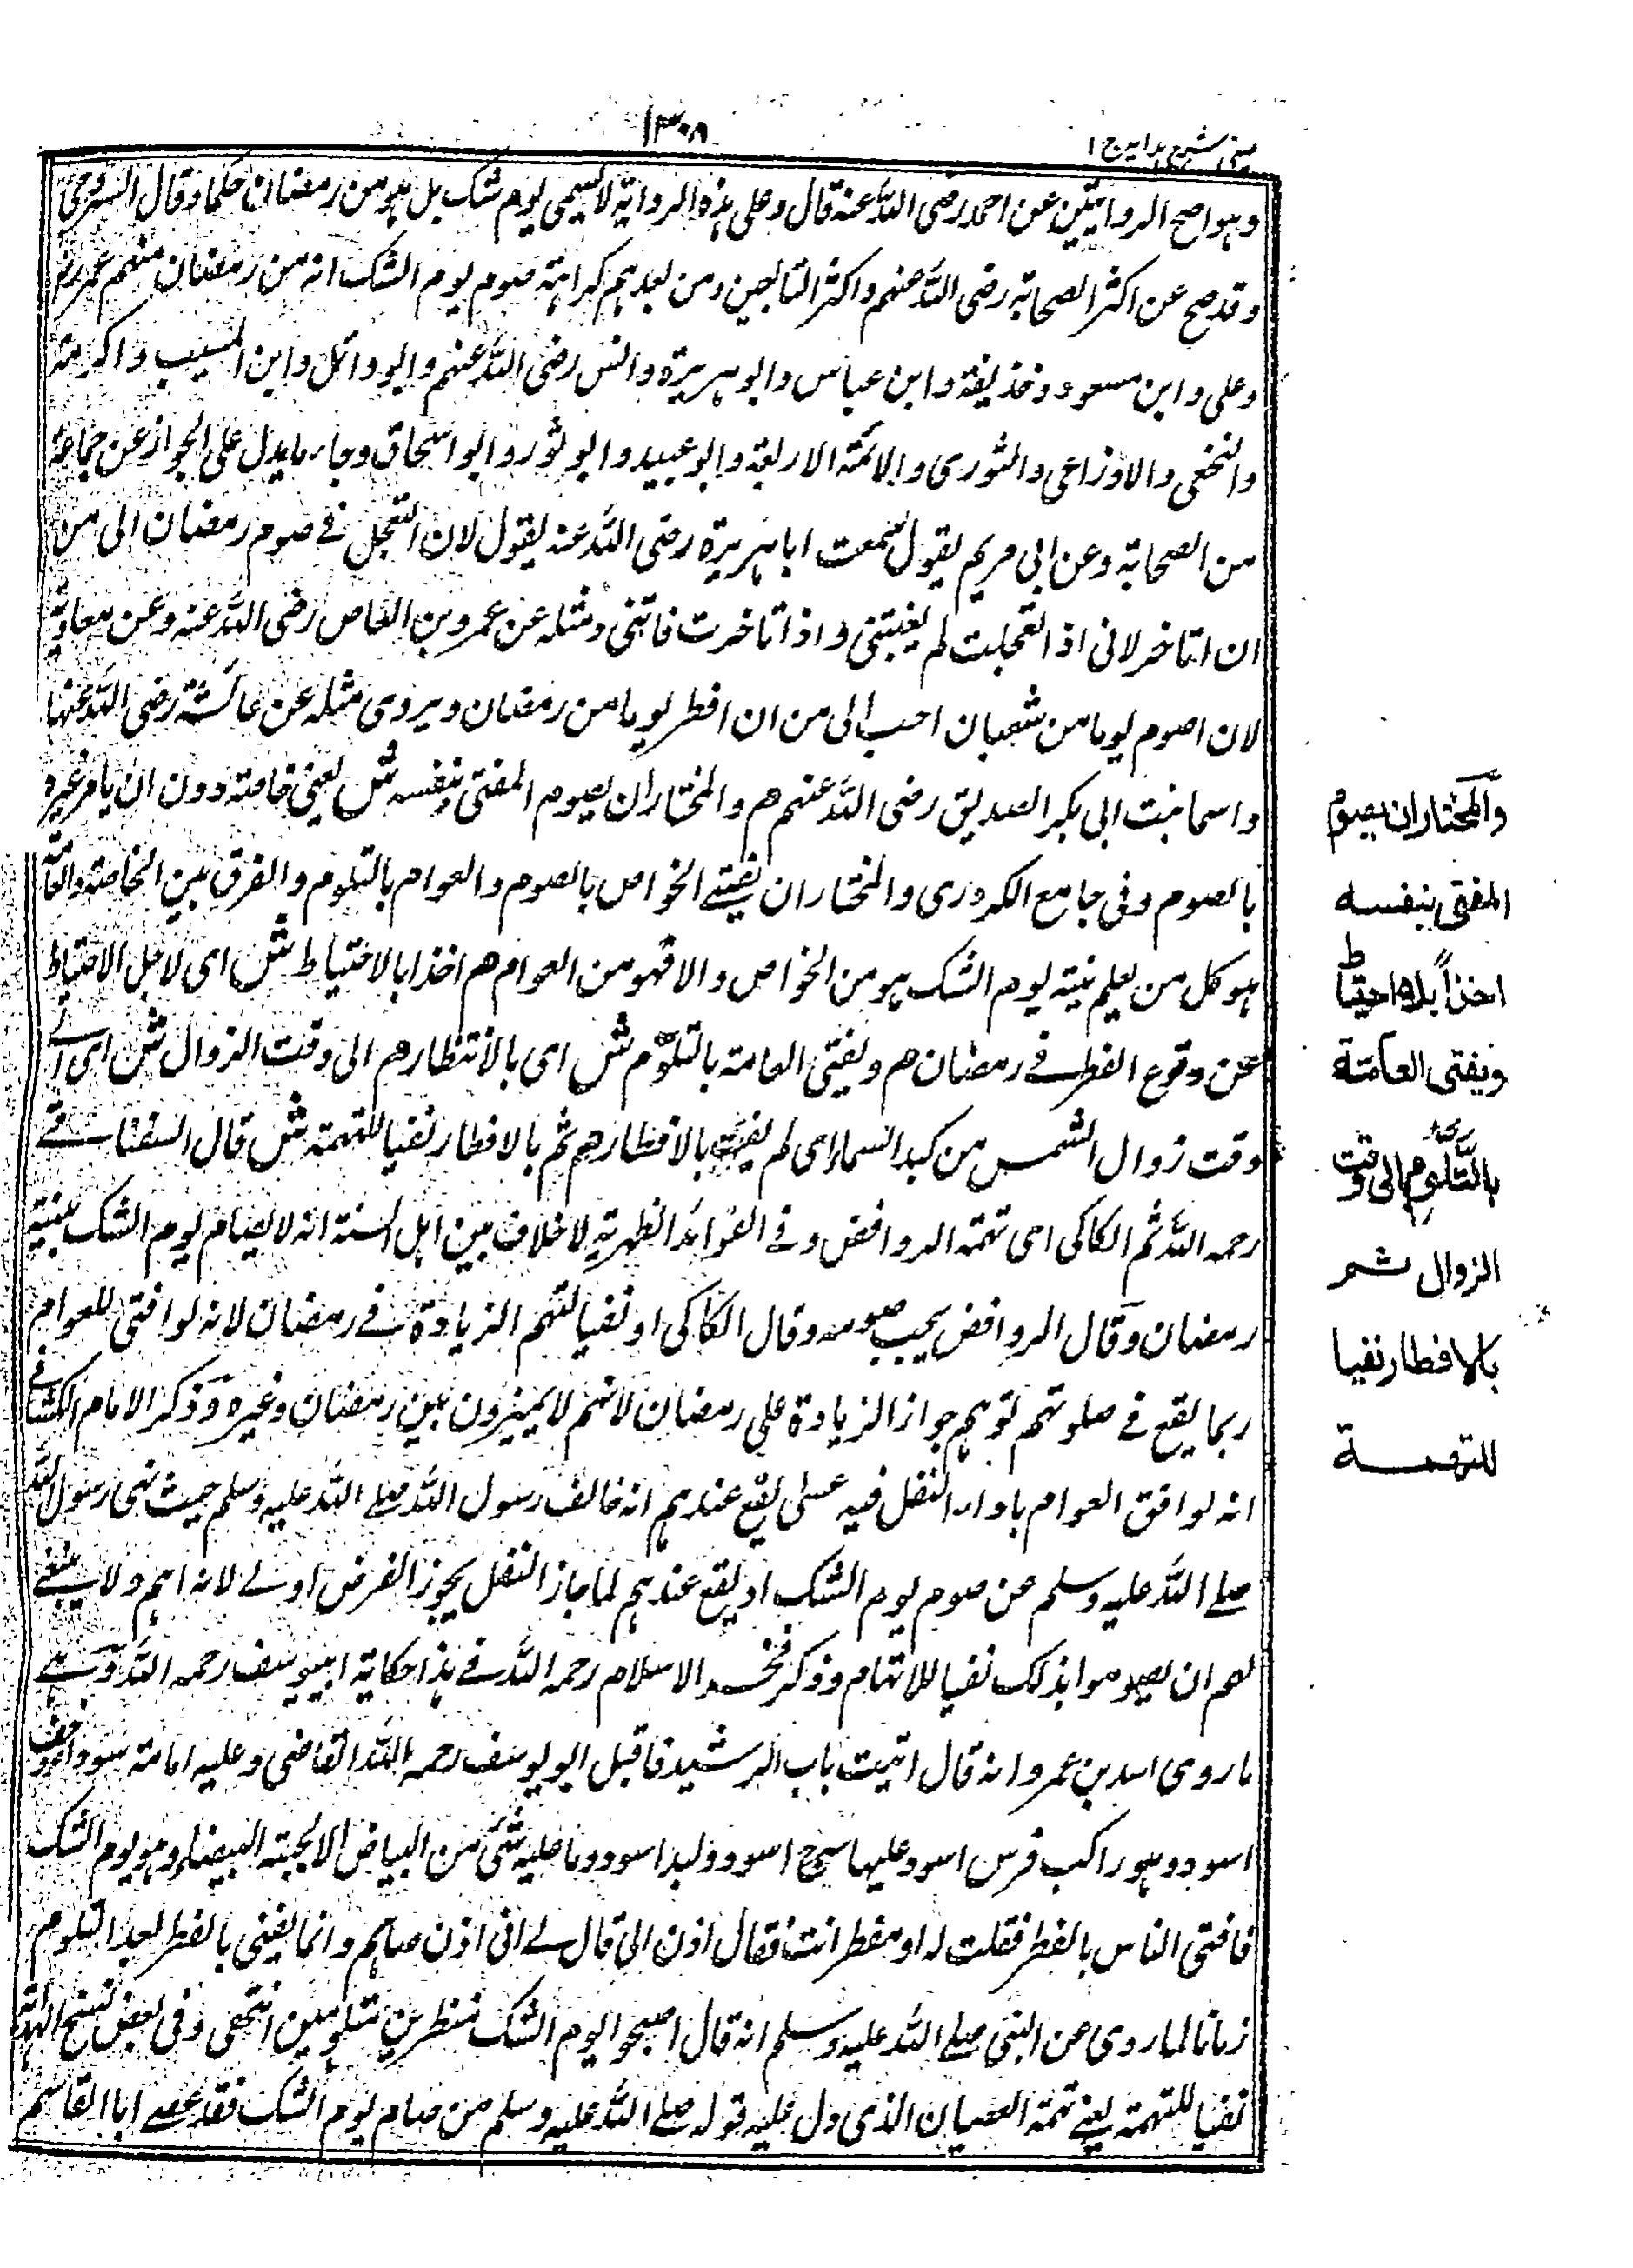 عینی شرح ہدایہ ج ۱
۱۳۰۸
وہو اصح الروایتین عن احمد رضی اللہ عنہ قال وعلی ہذہ الروایۃ لا یسمی یوم شک بل ہو من رمضان حکما وقال السروجی
وقد صح عن اکثر الصحابۃ رضی اللہ عنہم واکثر التابعین ومن بعدہم کراہۃ صوم یوم الشک انہ من رمضان منہم عمر رضہ
وعلی وابن مسعود وحذیفۃ وابن عباس وابو ہریرۃ وانس رضی اللہ عنہم وابو وائل وابن المسیب وعکرمۃ
والنخعی والاوزاعی والثوری والائمۃ الاربعۃ وابو عبید وابو ثور وابو اسحاق وجاء ما یدل علی الجواز عن جماعۃ
من الصحابۃ وعن ابی مریم یقول سمعت ابا ہریرۃ رضی اللہ عنہ یقول لان اتعجل فے صوم رمضان الی من
ان اتاخر لانی اذا تعجلت لم یفتنی واذا تاخرت فاتنی ومثلہ عن عمرو بن العاص رضی اللہ عنہ وعن معاویۃ
لان اصوم یوما من شعبان احب الی من ان افطر یوما من رمضان ویروی مثلہ عن عائشۃ رضی اللہ عنہا
واسما بنت ابی بکر الصدیق رضی اللہ عنہم ھم والمختار ان یصوم المفتی بنفسہ ش یعنی خاصۃ دون ان یامر غیرہ
بالصوم وفی جامع الکردری والمختار ان یفتے الخواص بالصوم والعوام بالتلوم والفرق بین الخاصۃ والعامۃ
ہو کل من یعلم نیتہ یوم الشک ہو من الخواص والا فہو من العوام ھم اخذا بالاحتیاط ش ای لاجل الاحتیاط
عن وقوع الفطر فے رمضان ھم ویفتی العامۃ بالتلوم ش ای بالانتظار ھم الی وقت الزوال ش ای الے
وقت زوال الشمس من کبد السماء ای لم یفتہ بالافطار ھم ثم بالافطار نفیا للتہمۃ ش قال السغناقے
رحمہ اللہ ثم الکاکی ای تہمۃ الروافض وفے الفوائد الظہریۃ لا خلاف بین اہل السنۃ انہ لا یصام یوم الشک بنیۃ
رمضان وقال الروافض یجب صومہ وقال الکاکی او نفیا لتہم الزیادۃ فے رمضان لانہ لو افتی للعوام
ربما یقع فے صلوتہم توہم جواز الزیادۃ علی رمضان لانہم لا یمیزون بین رمضان وغیرہ وذکر الامام الکشانے
انہ لو افتی العوام باداء النفل فیہ عسی یقع عندہم انہ خالف رسول اللہ صلے اللہ علیہ وسلم حیث نہی رسول اللہ
صلے اللہ علیہ وسلم عن صوم یوم الشک او یقع عندہم لما جاز النفل یجوز الفرض اولے لانہ اہم ولا ینبغے
لہم ان یصوموا بذلک نفیا للاتہام وذکر فخر الاسلام رحمہ اللہ فے ہذا حکایۃ ابی یوسف رحمہ اللہ وہے
ما روی اسد بن عمرو انہ قال اتیت باب الرشید فاقبل ابو یوسف رحمہ اللہ القاضی وعلیہ امامۃ سوداء وخف
اسود وہو راکب فرس اسود علیہا سرج اسود ولبد اسود وما علیہ شئ من البیاض الا لحیتہ البیضاء وہو یوم الشک
فافتی الناس بالفطر فقلت لہ او مفطر انت فقال اذن الی قال لے انی اذن صایم وانما یفتی بالفطر بعد التلوم
زمانا لما روی عن النبی صلے اللہ علیہ وسلم انہ قال اصبحوا یوم الشک منتظرین متلومین انتہی وفی بعض نسخ الہدایۃ
نفیا للتہمۃ یعنے تہمۃ العصیان الذی دل علیہ قولہ صلے اللہ علیہ وسلم من صام یوم الشک فقد عصے ابا القاسم
والمختار ان یصوم
المفتی بنفسہ
اخذاً بالاحتیاط
ویفتی العامّۃ
بالتّلوّم الی وقت
الزوال ثم
بالافطار نفیا
للتہمۃ